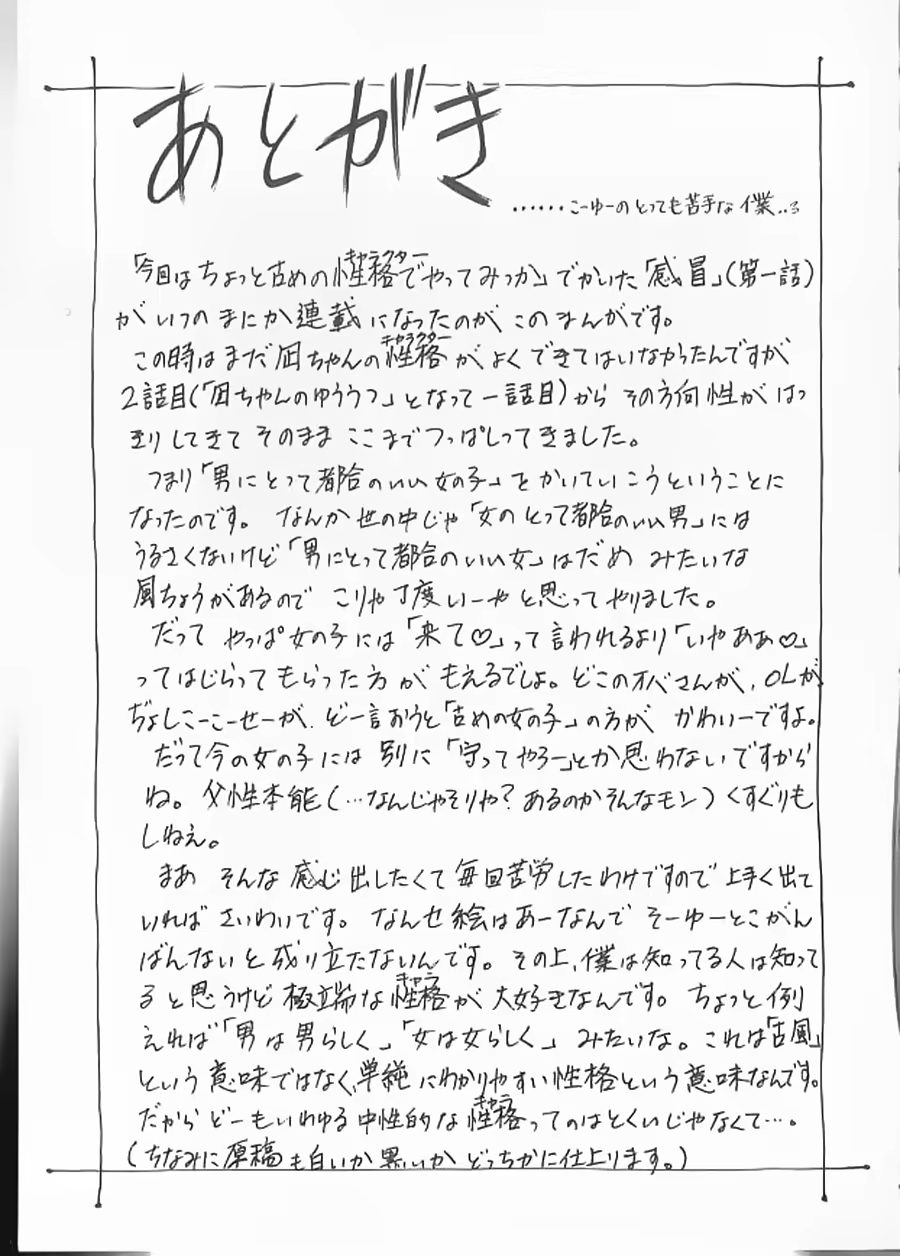 あとがき
……こーゆーのとっても苦手な僕..ろ
「今回はちょっと古めの性格でやってみっか」でかいた「感冒」(第一話)
がいつのまにか連載になったのがこのまんがです。
この時はまだ凪ちゃんの性格がよくできてはいなかったんですが
2話目(「凪ちゃんのゆううつ」となって一話目)からその方向性がはっ
きりしてきてそのままここまでつっぱしってきました。
つまり「男にとって都合のいい女の子」をかいていこうということに
なったのです。なんか世の中じゃ「女のとって都合のいい男」には
うるさくないけど「男にとって都合のいい女」はだめみたいな
風ちょうがあるのでこりゃ丁度いーやと思ってやりました。
だってやっぱ女の子には「来て♡」って言われるより「いやああ♡」
ってはじらってもらった方がもえるでしょ。どこのオバさんが、OLが
ぢょしこーこーせーが、ど一言おうと「古めの女の子」の方がかわいーですよ。
だって今の女の子には別に「守ってやろー」とか思わないですから
ね。父性本能(…なんじゃそりゃ?あるのかそんなモン)くすぐりも
しねえ。
まあそんな感じ出したくて毎回苦労したわけですので上手く出て
いればさいわいです。なんせ絵はあーなんでそーゆーとこがん
ばんないと成り立たないんです。その上、僕は知ってる人は知って
ると思うけど極端な性格が大好きなんです。ちょっと例
えれば「男は男らしく」「女は女らしく」みたいな。これは「古風」
という意味ではなく、単純にわかりやすい性格という意味なんです。
だからどーもいわゆる中性的な性格ってのはとくいじゃなくて…。
(ちなみに原稿も白いか黒いかどっちかに仕上ります。)